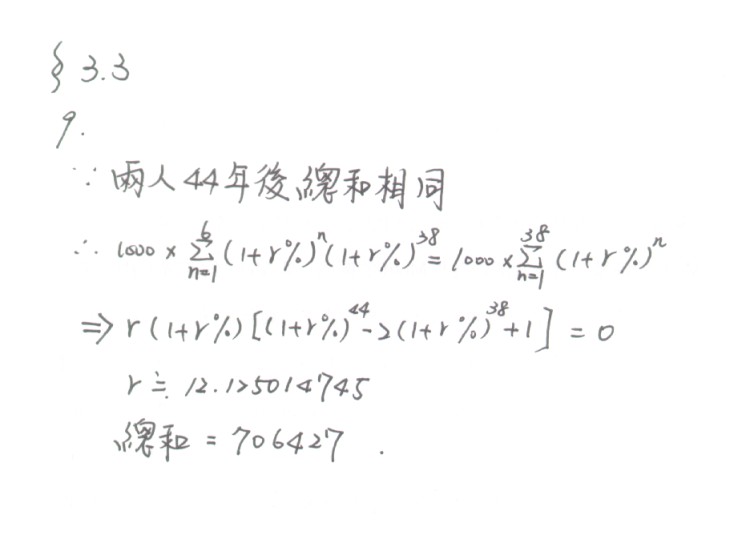 § 3.3
9.
∵ 兩人44年後總和相同
∴ 1000 × ∑_{n=1}^{6} (1+r%)^n (1+r%)^{38} = 1000 × ∑_{n=1}^{38} (1+r%)^n
⇒ r(1+r%)[(1+r%)^{44} - 2(1+r%)^{38} + 1] = 0
r ≒ 12.125014745
總和 = 706427 .